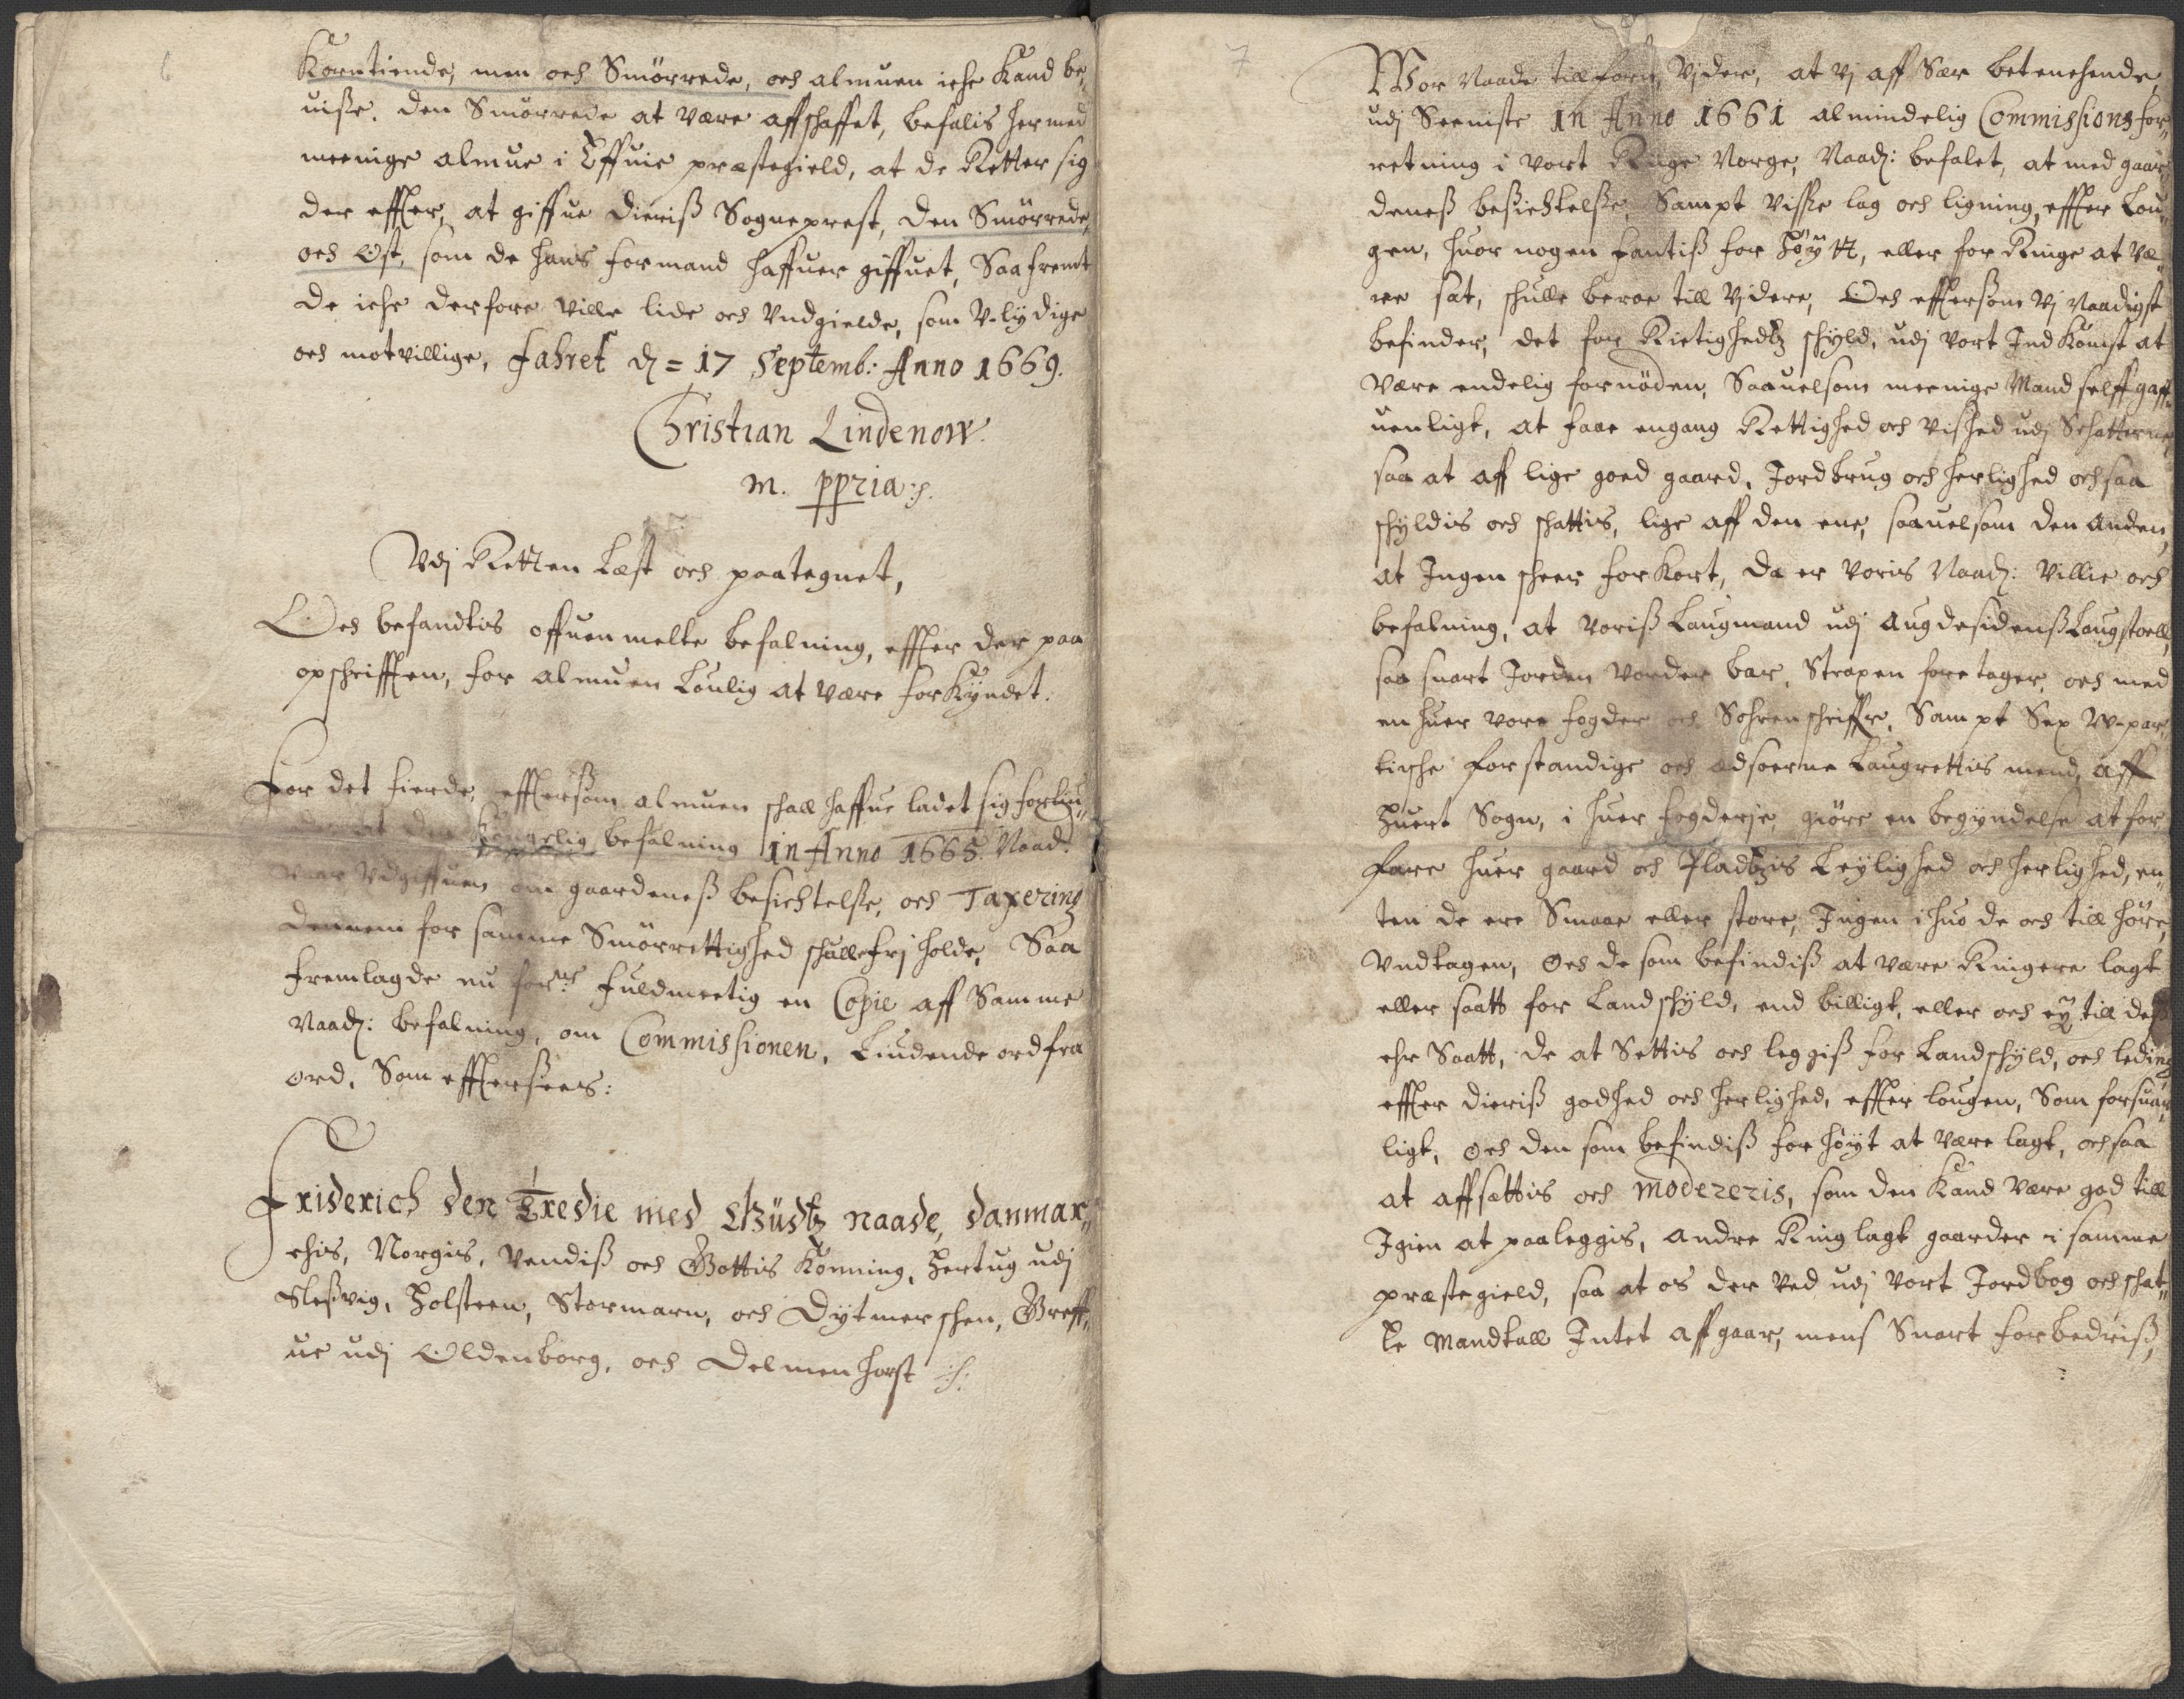 6
Korntiende, men och Smörrede, och almuen iche Kand be„
uisse, den Smörrede at være affschaffet, befalis hermed
meenige almue i Effuie præstegield, at de Retter sig
der effter, at giffue dieriß Sogneprest, den Smörrede,
och Ost, som de hans formand haffuer giffuet, Saafremt
de iche derfore ville lide och Undgielde, som V-lÿdige
och motvillige, Fahret d = 17 Septemb: Anno 1669.
Christian Lindenow
m. ppria
Udj Retten Læst och paategnet,
Och befandtis offuenmelte befalning, effter der paa
opschrifften, for almuen Loulig at være forKÿndet.
For det fierde, efftersom almuen schall haffue ladet sig forliu„
at den Kongelig befalning in Anno 1665. Naad:
vaar Udgiffuen om gaardeneß besichtelse, och Taxering
dennem for samme Smörrettighed schulle frj holde, Saa
fremlagde nu forne fuldmectig en Copie aff Samme
Naad: befalning, om Commissionen, Liudende ord fra
ord, Som effterfölger:
Friderich den Tredie med Gudtz naade, danmar„
chis, Norgis, Vendiß och Gottis Konning, Hertug udj
Sleßvig, Holsteen, Stormarn, och Dÿtmerschen, Greff„
ue udj Oldenborg, och Delmenhorst
7
Wor Naade tillforn, Vider, at Vj aff Sær betenchende,
udj Seeniste in Anno 1661 almindelig Commissions for„
retning i vort Rige Norge, Naad: befalet, at med gaar„
deneß beßichtelse, Sampt Visse lag och ligning, effter Lou„
gen, huor nogen fantiß for Höÿtt, eller for Ringe at væ„
re sat, schulle beroe till Videre, Och effterßom Vj Naadigst
befinder, det for Rictighedtz schÿld, udj vort IndKomst at
være endelig fornöden, Saauelsom meenige Mand selff gaff„
uenligt, at faae engang Rettighed och Vished udj Schatterne
saa at aff lige goed gaard, Jordbrug och herlighed och saa
schÿldis och schattis, lige aff den ene, saauelsom den anden,
at Ingen scheer forKort, da er voris Naad: Villie och
befalning, at voriß Laugmand udj AugdesidensLaugstoell,
saa snart Jorden vorder bar, Strapen foretager, och med
en huer vore fogder och Sohrenschriffr, Sampt Sex W-par„
tische forstandige och edsoerne Laugrettis mend, aff
huert Sogn, i huer fogderje, giöre en begÿndelse at for
fare huer gaard och Pladtzis Leÿlighed och herlighed, en„
ten de ere Smaae eller store, Ingen i huo de och till höre,
Undtagen, Och de som befindiß at være Ringere lagt
eller saatt for Landschÿld, end billigt, eller och eÿ till deß
ehr Saatt, de at Settis och leggiß for Landschÿld, och leding
effter dieriß godhed och herlighed, effter lougen, Som forsuar„
ligt, och den som befindiß for höÿt at være lagt, och saa
at affsættis och modereris, som den Kand være god till
Igien at paaleggis, andre Ring lagt gaarder i samme
præstegield, saa at os der Ved udj vort Jordbog och schat„
te Mandtall Intet affgaar, mens Snart forbedriß,